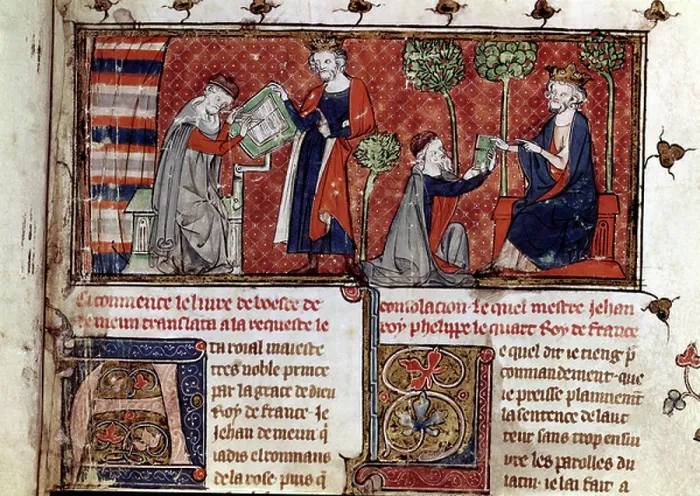 Ci commence le livre de boesce de consolacion. le quel mestre Jehan
de meun translata a la requeste le roy phelippe le quart Roy de france
A ta roial maieste
tres noble prince
par la grace de dieu
Roy de france. Je
Jehan de meun q̄
iadis el rommans
de la rose. puis q̄
e quel dit ie tieng p̄
commandement. que
ie preisse plainnem̄t
la sentence de lauc
teur sans trop ensiu
vre les parolles du
latin. ie lai fait a